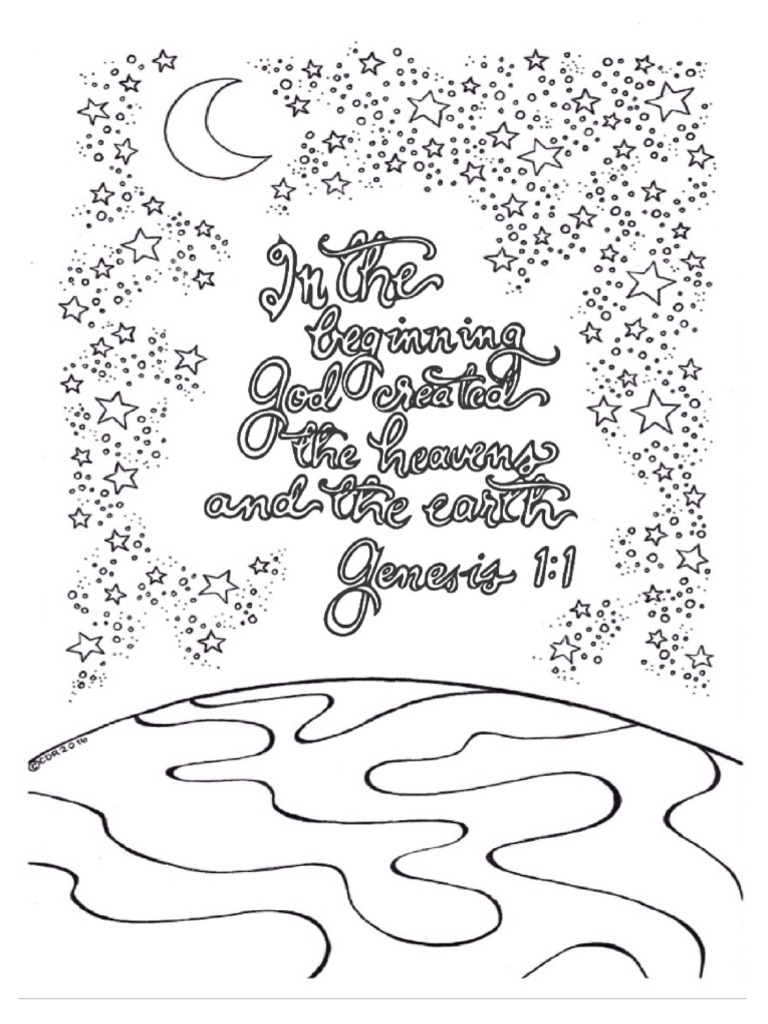 In the
beginning
God created
the heavens
and the earth
Genesis 1:1
©CDR2016